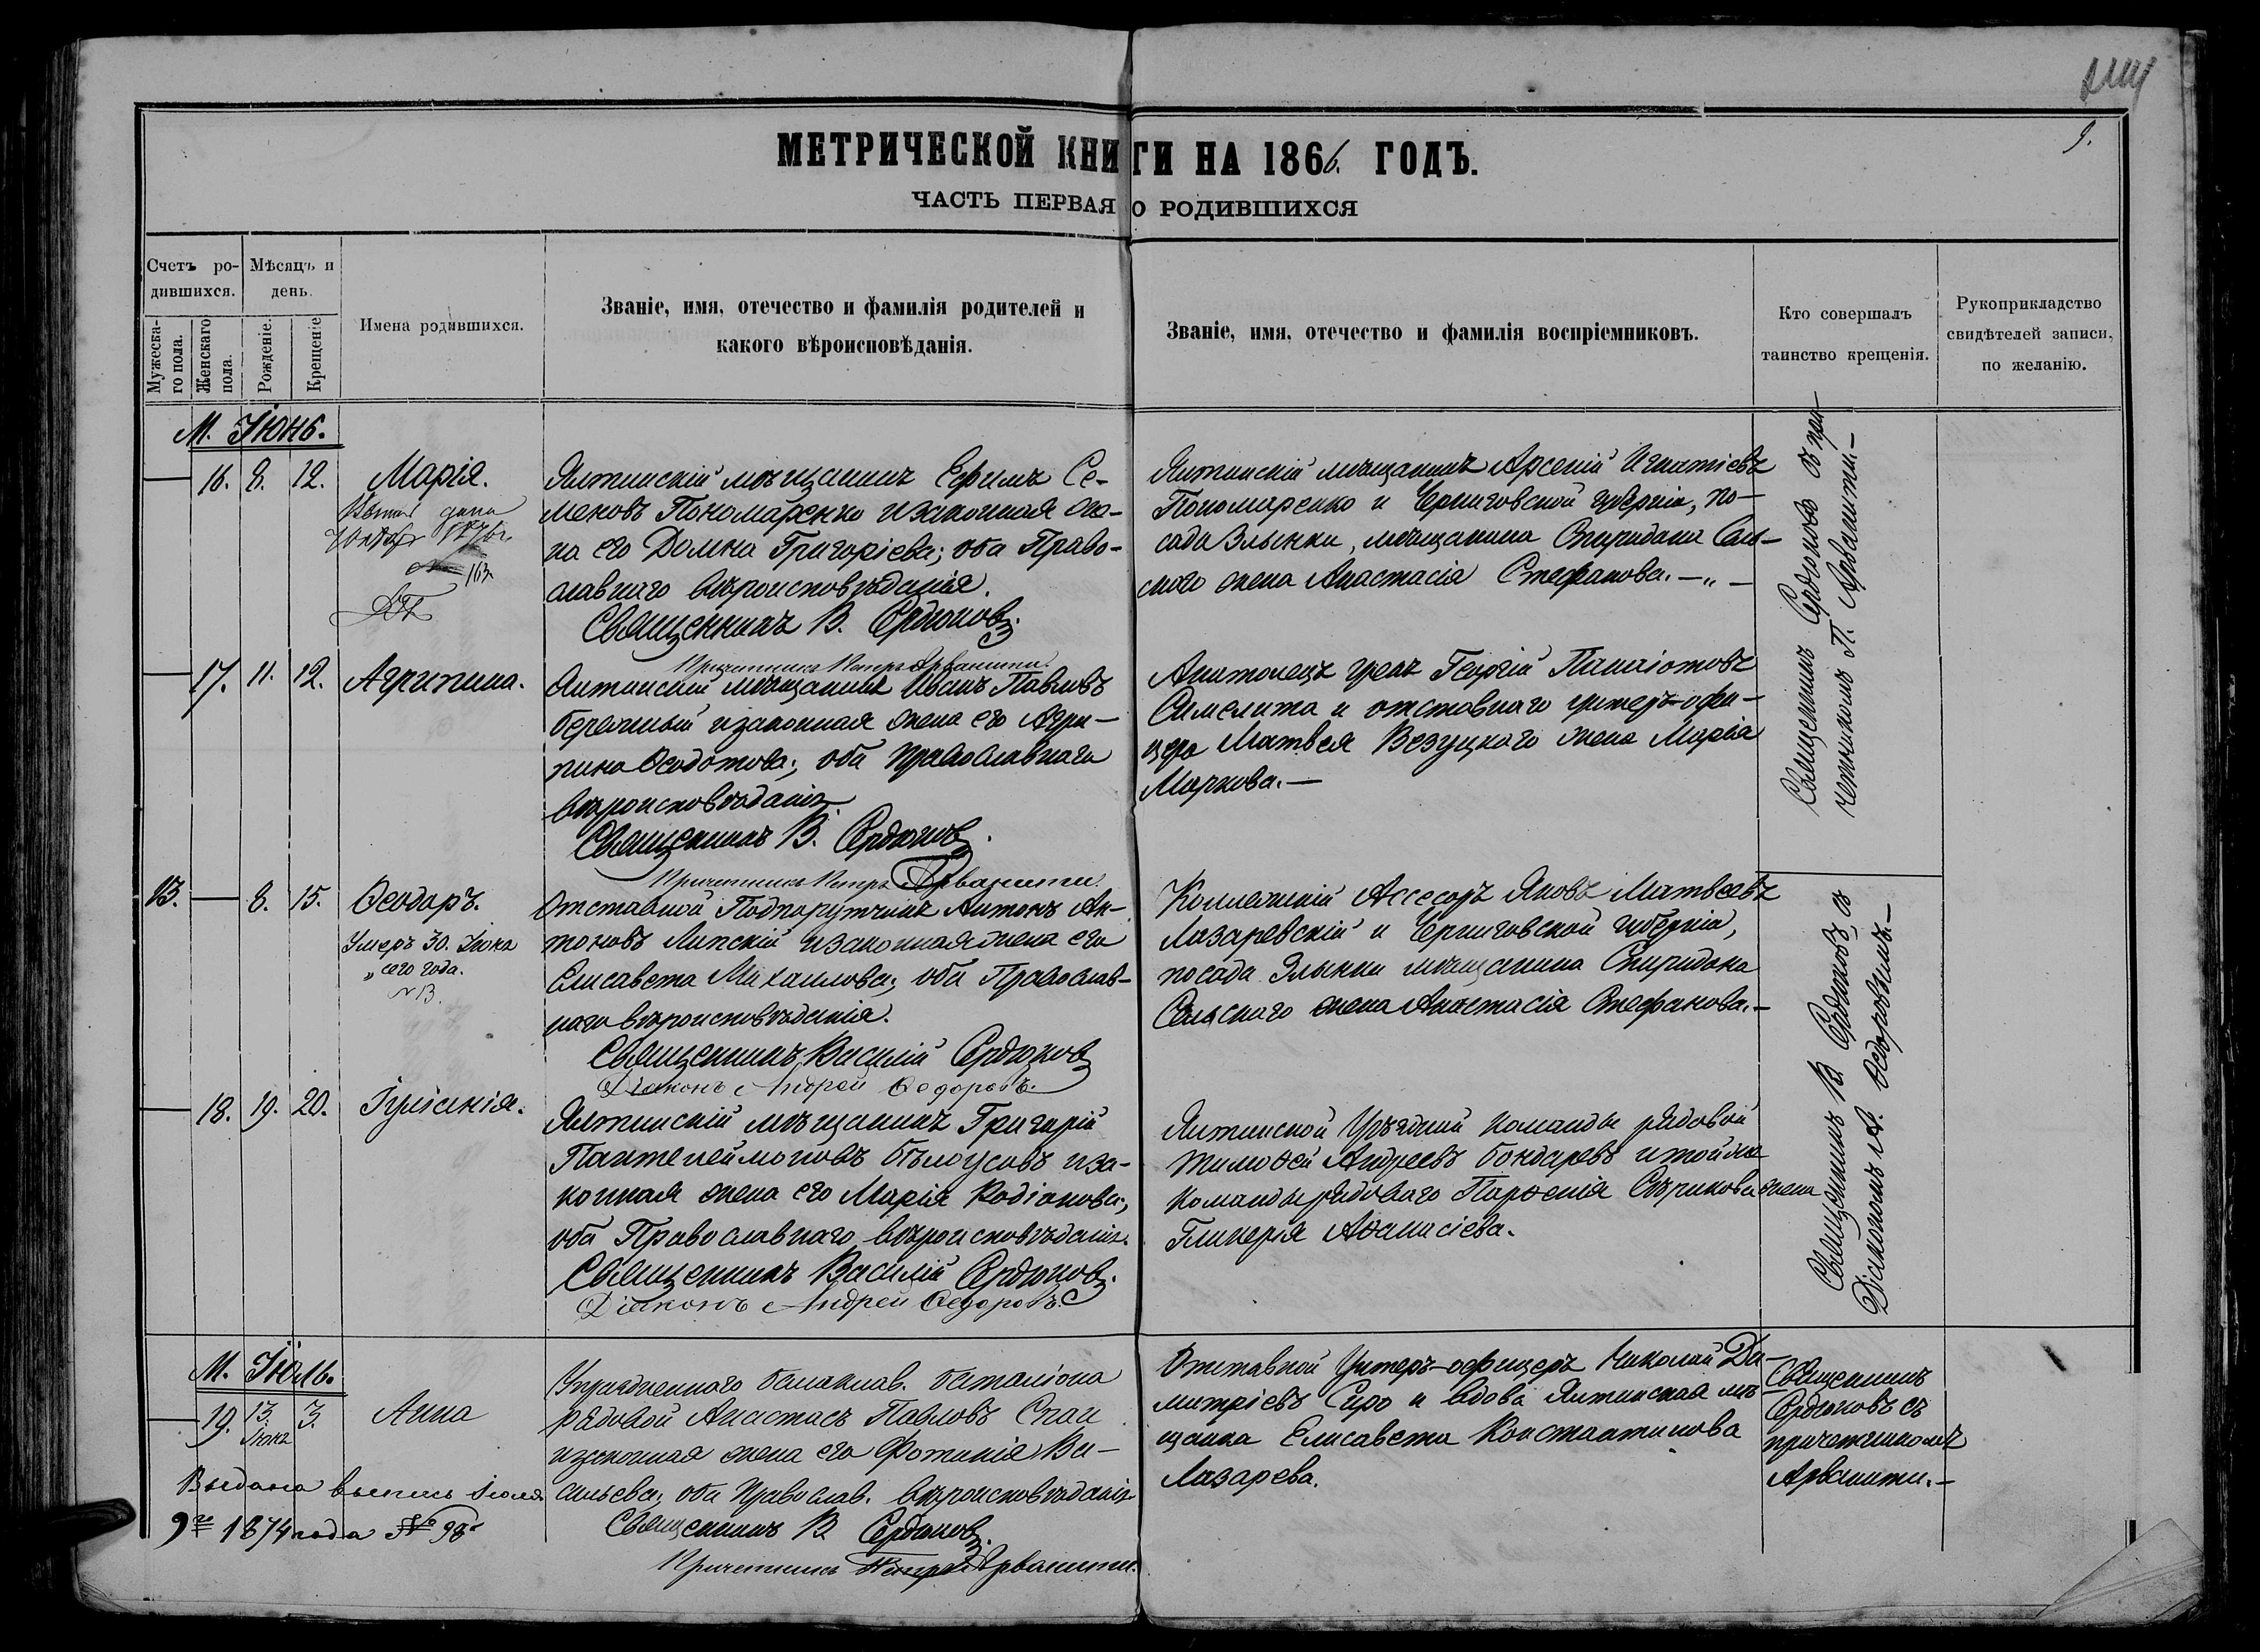 9.
МЕТРИЧЕСКОЙ КНИГИ НА 1866. ГОДЪ.
ЧАСТЬ ПЕРВАЯ О РОДИВШИХСЯ
Счетъ ро-
дившихся.
Мѣсяцъ и
день.
Мужеска-
го пола.
Женскаго
пола.
Рожденіе.
Крещеніе
Имена родившихся.
Званіе, имя, отечество и фамилія родителей и
какого вѣроисповѣданія.
Званіе, имя, отечество и фамилія воспріемниковъ.
Кто совершалъ
таинство крещенія.
Рукоприкладство
свидѣтелей записи,
по желанію.
М. Іюнь.
— 16. 8. 12. Марія.
дана
1876г.
163
Ялтинскій мѣщанинъ Ефимъ Се-
меновъ Пономаренко и законная же-
на его Домна Григоріева; оба Право-
славнаго вѣроисповѣданія.
Священникъ В. Сердюковъ.
Причетникъ Петръ Арванити.
Ялтинскій мѣщанинъ Арсеній Игнатіевъ
Пономаренко и Черниговской губерніи, по-
сада Злынки, мѣщанина Спиридона Саль-
скаго жена Анастасія Стефанова. — „ —
Священникъ Сердюковъ съ при-
четникомъ П. Арванити. —
— 17. 11. 12. Агрипина.
Ялтинскій мѣщанинъ Иванъ Павловъ
Бережный и законная жена его Агри-
пина Ѳеодотова; оба Православнаго
вѣроисповѣданія.
Священникъ В. Сердюковъ.
Причетникъ Петръ Арванити.
Георгій Панаіотовъ
и отставнаго унтеръ-офи-
цера Матвея Везуцкаго жена Марія
Маркова. —
13. — 8. 15. Ѳеодоръ.
Умеръ 30. Іюня
„ сего года.
№ 13.
Отставной Подпоручикъ Антонъ Ан-
тоновъ Липскій и законная жена его
Елисавета Михаилова; оба Православ-
наго вѣроисповѣданія.
Священникъ Василій Сердюковъ
Діаконъ Андрей Ѳедоровъ.
Коллежскій Ассесоръ Яковъ Матвеевъ
Лазаревскій и Черниговской губерніи,
посада Злынки мѣщанина Спиридона
Сальскаго жена Анастасія Стефанова. —
Священникъ В. Сердюковъ, съ
Діакономъ А. Ѳедоровымъ. —
— 18. 19. 20. Іуліанія.
Ялтинскій мѣщанинъ Григорій
Пантелеймоновъ Бѣлоусовъ и за-
конная жена его Марія Родіонова;
оба Православнаго вѣроисповѣданія.
Священникъ Василій Сердюковъ.
Діаконъ Андрей Ѳедоровъ.
Ялтинской Уѣздной команды рядовой
Тимоѳей Андреевъ Бондаревъ и той же
команды рядоваго Парѳенія жена
Гликерія Аѳанасіева.
М. Іюль.
— 19. 13. Іюня 3. Анна
Выдана выпись Іюля
9го 1874 года № 98
Упраздненнаго балаклав. баталіона
рядовой Анастасъ Павловъ Спаи
и законная жена его Фотинія Ва-
сильева; оба Православ. вѣроисповѣданія
Священникъ В. Сердюковъ.
Причетникъ Петръ Арванити.
Отставной Унтеръ-офицеръ Николай Ди-
митріевъ Сиро и вдова Ялтинская мѣ-
щанка Елисавета Константинова
Лазарева.
Священникъ
Сердюковъ съ
причетникомъ
Арванити. —